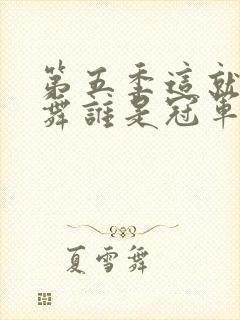 第五季這就
舞誰是冠軍
夏雪舞